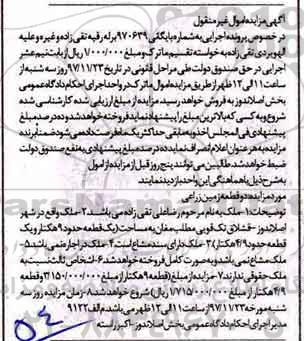 آگهی مزایده اموال غیر منقول
در خصوص پرونده اجرایی به شماره بایگانی ۹۷۰۶۳۹ برله رقیه تقی زاده و غیره و علیه
الهویردی تقی زاده به خواسته تقسیم ماترک و مبلغ ۷/۰۰۰/۰۰۰ ریال از بابت نیم عشر
اجرایی در حق صندوق دولت طی مراحل قانونی در تاریخ ۹۷/۱۱/۲۳ روز سه شنبه از
ساعت ۱۱ الی ۱۲ ظهر از طریق مزایده اموال ماترک در واحد اجرای احکام دادگاه عمومی
بخش اصلاندوز به فروش خواهد رسید. مزایده از مبلغ ارزیابی شده کارشناسی شده
شروع و به کسی که بالاترین مبلغ را پیشنهاد نماید فروخته خواهد شد و ده درصد مبلغ
پیشنهادی فی المجلس اخذ و به مابقی حداکثر یک ماه فرصت داده می شود ضمنا برنده
مزایده به هر عنوان اعلام انصراف نماید ده درصد مبلغ پیشنهادی به نفع صندوق دولت
ضبط خواهد شد. طالبین می توانند پنج روز قبل از مزایده از اموال
به شرح ذیل با هماهنگی این واحد بازدید نمایند.
مورد مزایده دو قطعه زمین زراعی
توضیحات: ۱- ملک به نام مرحوم رضاعلی تقی زاده می باشد ۲- ملک واقع در شهر
اصلاندوز - قشلاق تک قویی مطلب مغان به مساحت (یک قطعه حدود ۹ هکتار و یک
قطعه حدود ۴/۹ هکتار) ۳- ملک دارای سند مشاع است ۴- ملک در اجاره نمی باشد ۵-
ملک مشاع نمی باشد و به صورت کامل فروخته خواهد شد ۶- اشخاص ثالث نسبت به
ملک حقوقی ندارند ۷- مزایده از مبلغ (قطعه ۹ هکتار از مبلغ ۳/۱۵۰/۰۰۰/۰۰۰ و قطعه
۴/۹ هکتار از مبلغ ۱/۷۱۵/۰۰۰/۰۰۰ ریال) شروع خواهد شد ۸- زمان مزایده روز سه
شنبه مورخه ۹۷/۱۱/۲۳ از ساعت ۱۱ الی ۱۲ ظهر می باشد. م الف ۹۱۲۲
مدیر اجرای احکام دادگاه عمومی بخش اصلاندوز - اکبر راسته